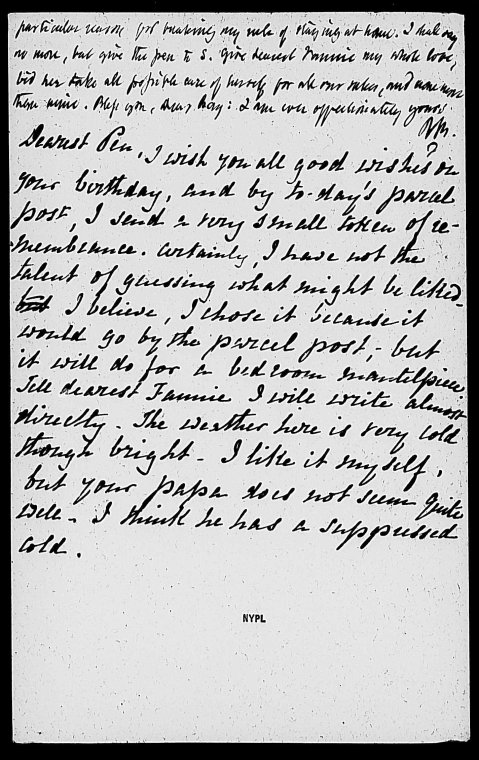 particular reason for breaking my rule of staying at home. I shall say
no more, but give the pen to S. Give dearest Fannie my whole love,
bid her take all possible care of herself for all our sakes, and none more
than mine. Bless you, dear boy: I am ever affectionately yours
RB.
Dearest Pen, I wish you all good wishes on
your birthday, and by to-day's parcel
post, I send a very small token of re-
membrance. Certainly, I have not the
talent of guessing what might be liked-
but I believe, I chose it because it
would go by the parcel post,- but
it will do for a bedroom mantelpiece
Tell dearest Fannie I will write almost
directly - The weather here is very cold
though bright - I like it myself,
but your papa does not seem quite
well - I think he has a suppressed
cold.
NYPL